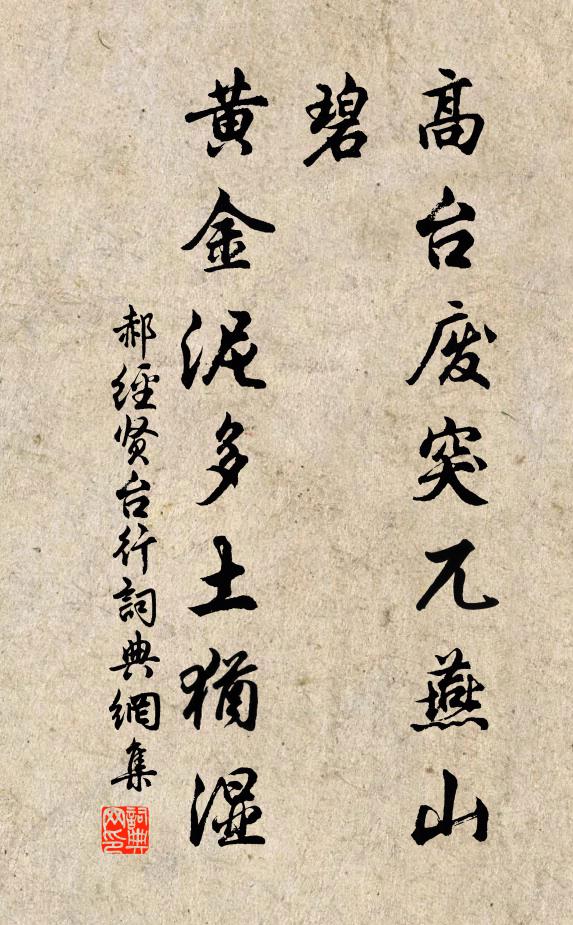 高台废突兀燕山
碧
黄金泥多土犹湿
郝經贤台行詞典網集
詞典网印